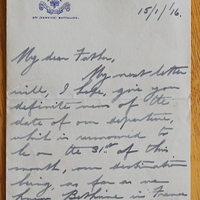 8TH (SERVICE) BATTALION.
15/1/'16.
My dear Father,
My next letter
will, I hope, give you
definite news of the
date of our departure,
which is rumoured to
be on the 31st of this
month, our destination
being, as far as we
Bethune in France